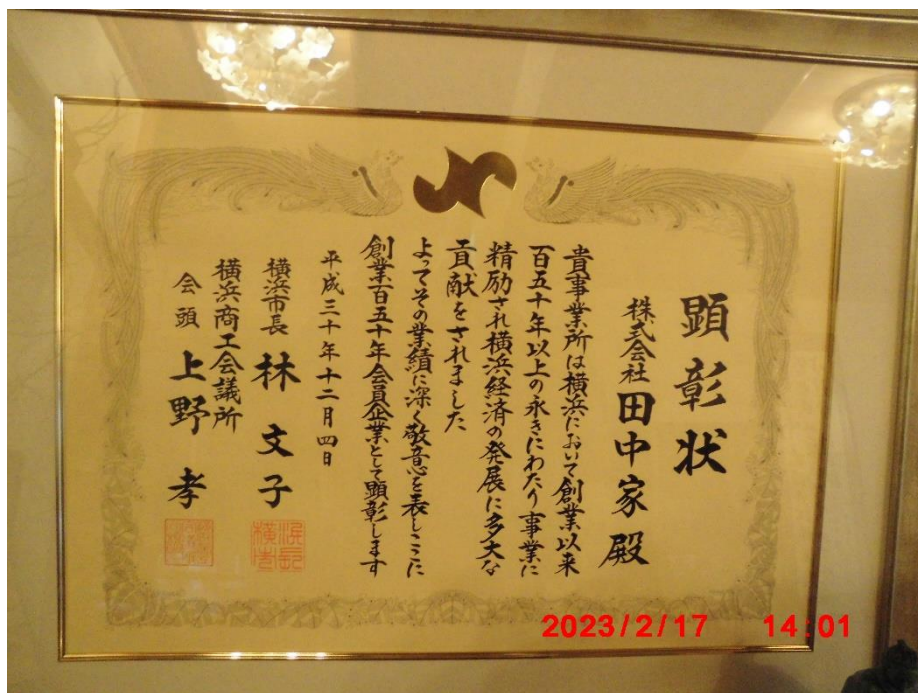 顕彰状
株式会社 田中家 殿
貴事業所は横浜において創業以来
百五十年以上の永きにわたり事業に
精励され横浜経済の発展に多大な
貢献をされました
よってその業績に深く敬意を表しここに
創業百五十年会員企業として顕彰します
平成三十年十二月四日
横浜市長 林 文子
横浜商工会議所
会頭 上野 孝
2023/2/17 14:01